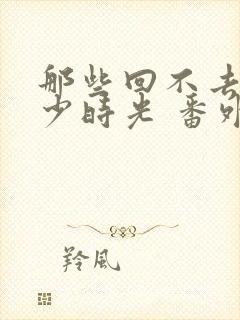 那些回不去
少時光 番外
羚風